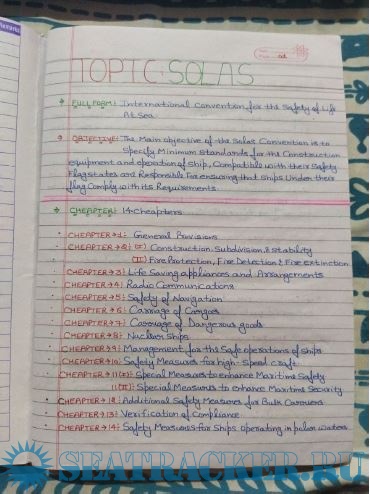 TOPIC:SOLAS
→ FULL FORM: International Convention for the Safety of Life
At Sea
→ OBJECTIVE: The Main objective of the Solas Convention is to
Specify Minimum Standards for the Construction
equipment and operation of Ship, Compatible with their Safety
Flag states are Responsible for ensuring that Ships Under their
flag Comply with its Requirements
→ CHEAPTER: 14 cheapters
CHEAPTER→1: General Provisions
CHEAPTER→2: (I) Construction, Subdivision, & stability
(II) Fire Protection, Fire Detection & Fire extinction
CHEAPTER→3: Life Saving appliances and Arrangements
CHEAPTER→4: Radio Communications
CHEAPTER→5: Safety of Navigation
CHEAPTER→6: Carriage of Cargoes
CHEAPTER→7: Carriage of Dangerous goods
CHEAPTER→8: Nuclear Ships
CHEAPTER→9: Management for the Safe operations of Ships
CHEAPTER→10: Safety Measures for high-Speed craft
CHEAPTER→11(I): Special Measures to enhance Maritime Safety
11(II): Special Measures to enhance Maritime Security
CHEAPTER→12: Additional Safety Measures for Bulk Carriers
CHEAPTER→13: Verification of Compliance
CHEAPTER→14: Safety Measures for Ships operating in polar waters
SEATRACKER.RU